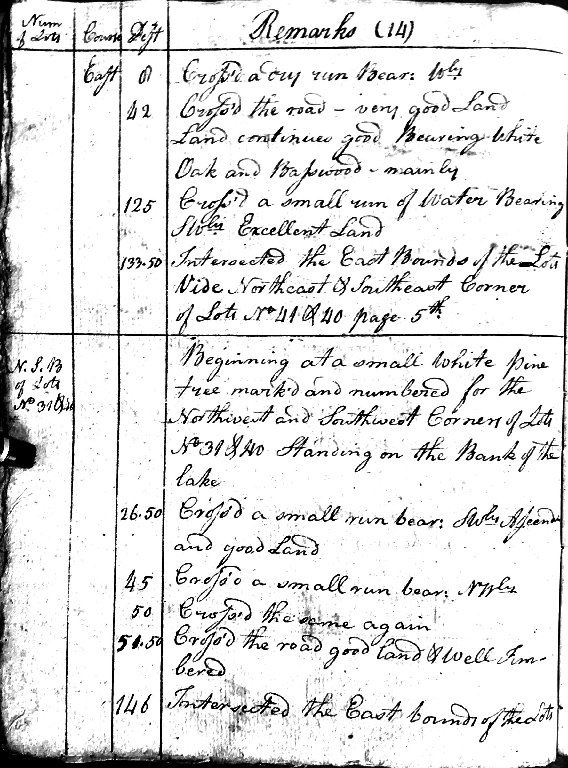 Num of Lots | Course | Dist | Remarks (14)
East 8 Cross'd a dry run Bear: Wly
42 Cross'd the road - very good Land
Land continues good Bearing White
Oak and Basswood - mainly
125 Cross'd a small run of Water Bearing
SWly Excellent Land
133.50 Intersected the East Bounds of the Lots
Vide Northeast & Southeast Corner
of Lots No 41 & 40 page 5th
Beginning at a small white pine
N. S. B tree mark'd and numbered for the
of Lots Northwest and Southwest Corners of Lots
No 39 & 40 Standing on the Bank of the
lake
26.50 Cross'd a small run bear: SWly Ascend
and good Land
45 Cross'd a small run bear: NWly
50 Cross'd the same again
51.50 Cross'd the road good land & Well Tim-
bered
146 Intersected the East bounds of the Lots